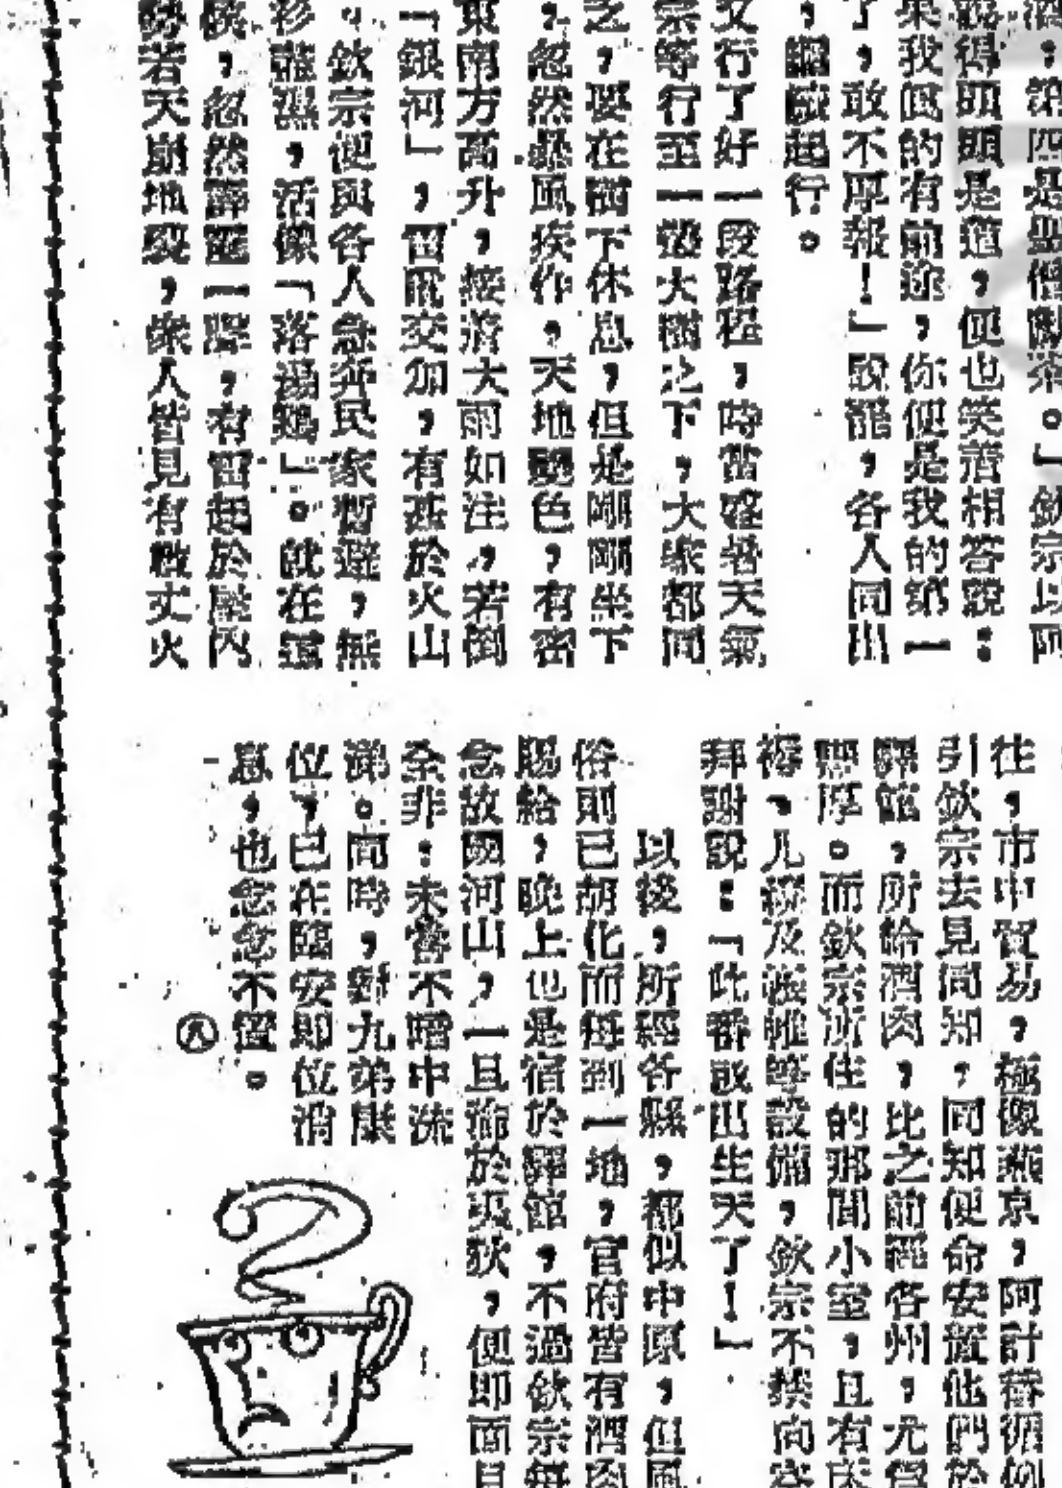 酒，第四是聖僧獻茶。」欽宗以阿
說得頭頭是道，便也笑着相答說：
果我眞的有前途，你便是我的第一
了，敢不厚報！」說罷，各人同出
，繼續起行。
又行了好一段路程，時當盛暑天氣
宗等行至一號大樹之下，大家都同
之，要在樹下休息，但是剛剛坐下
，忽然暴風疾作，天地變色，有密
東南方高升，接着大雨如注，若倒
「銀河」，雷電交加，有甚於火山
，欽宗便與各人急奔民家暫避，無
衫盡濕，活像「落湯鷄」。就在這
候，忽然霹靂一聲，有雷起於屋內
勢若天崩地裂，衆人皆見有數丈火
往，市中貿易，極像燕京，阿計替循例
引欽宗去見同知，同知便命安置他們於
驛館，所給酒肉，比之前經各州，尤爲
豐厚。而欽宗所住的那間小室，且有床
褥、几椅及帳帷等設備，欽宗不禁向
拜謝說：「此番敢出生天了！」
以後，所經各縣，都似中原，但風
俗則已胡化而每到一地，官府皆有酒肉
賜給，晚上也是宿於驛館，不過欽宗每
念故國河山，一旦淪於夷狄，便即面目
全非：未嘗不暗中流
涕。同時，對九弟康
位，已在臨安即位消
息，也念念不置。
㊇